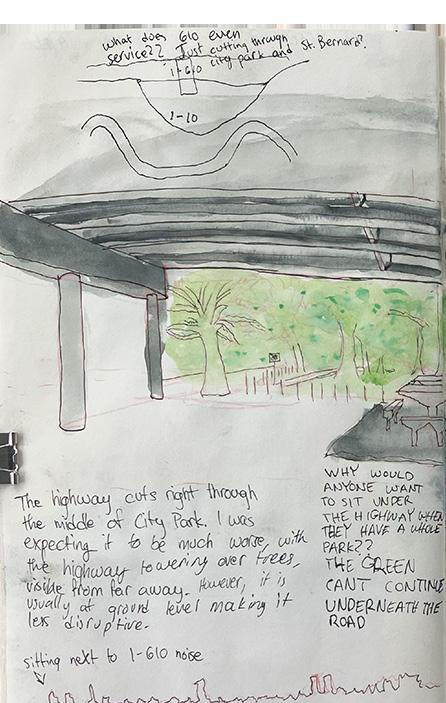 what does 610 even
service?? Just cutting through
city park and St. Bernard?
I-610
I-10
The highway cuts right through
the middle of City Park. I was
expecting it to be much worse, with
the highway towering over trees,
visible from far away. However, it is
usually at ground level making it
less disruptive.
WHY WOULD
ANYONE WANT
TO SIT UNDER
THE HIGHWAY WHEN
THEY HAVE A WHOLE
PARK??
THE GREEN
CANT CONTINUE
UNDERNEATH THE
ROAD
sitting next to I-610 noise